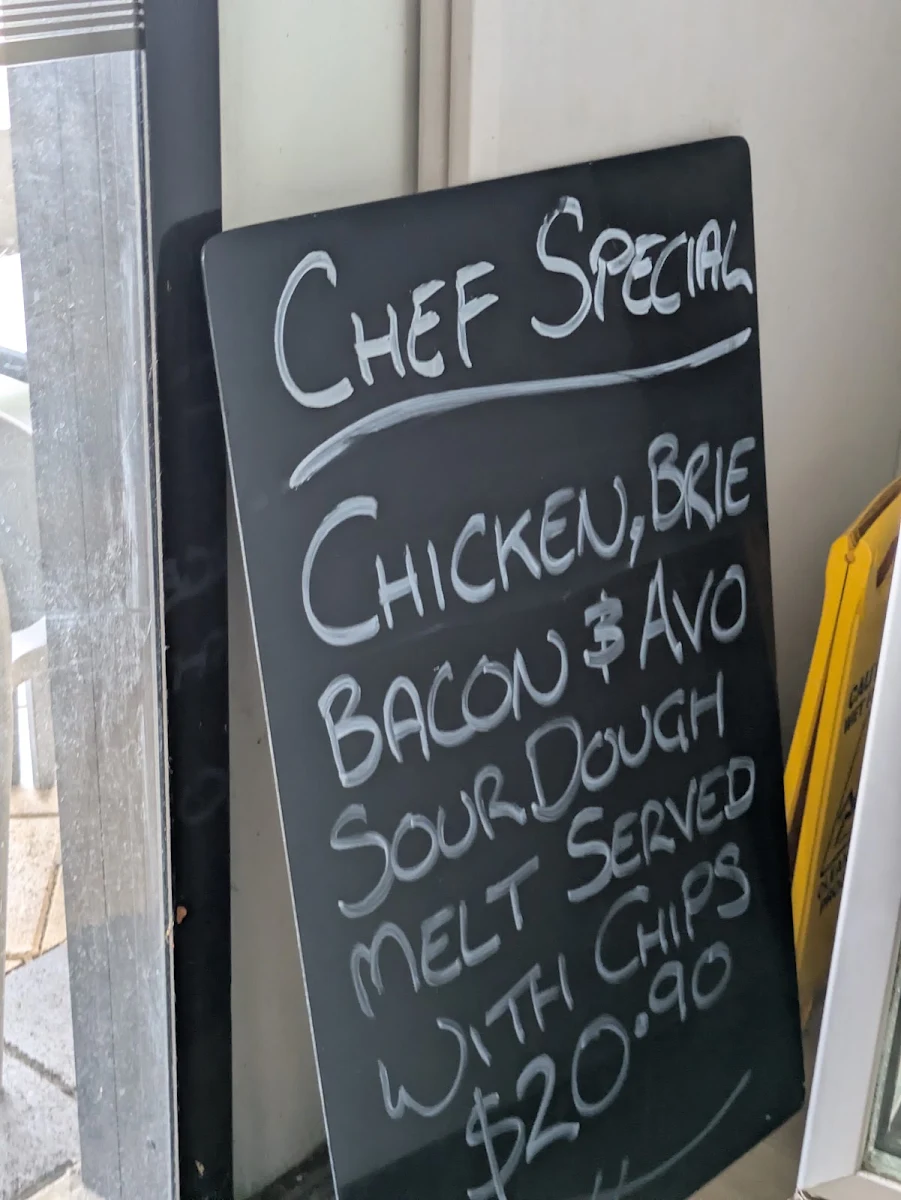 CHEF SPECIAL
CHICKEN, BRIE
BACON & AVO
SOURDOUGH
MELT SERVED
WITH CHIPS
$20.90